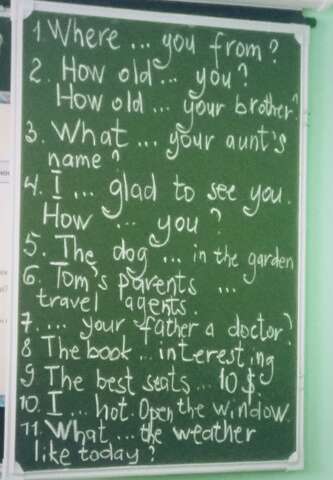 1. Where ... you from?
2. How old ... you?
How old ... your brother?
3. What ... your aunt's
name?
4. I ... glad to see you.
How ... you?
5. The dog ... in the garden
6. Tom's parents ...
travel agents.
7. ... your father a doctor?
8 The book ... interesting
9 The best seats ... 10 $
10. I ... hot. Open the window.
11. What ... the weather
like today?